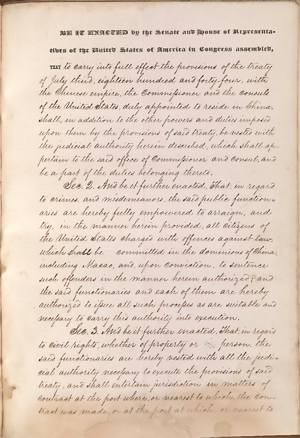 BE IT ENACTED by the Senate and House of Representa-
tives of the United States of America in Congress assembled,
THAT to carry into full effect the provisions of the treaty
of July third, eighteen hundred and forty-four, with
the Chinese empire, the Commissioner and the consuls
of the United States, duly appointed to reside in China,
shall, in addition to the other powers and duties imposed
upon them by the provisions of said treaty, be vested with
the judicial authority herein described, which shall ap-
pertain to the said office of Commissioner and consul, and
be a part of the duties belonging thereto.
Sec. 2. And be it further enacted, That in regard
to crimes and misdemeanors, the said public function-
aries are hereby fully empowered to arraign, and
try, in the manner herein provided, all citizens of
the United States charged with offences against law,
which shall be committed in the dominions of China,
including Macao, and, upon conviction, to sentence
such offenders in the manner herein authorized; and
the said functionaries and each of them are hereby
authorized to issue all such process as are suitable and
necessary to carry this authority into execution.
Sec. 3. And be it further enacted, That in regard
to civil rights, whether of property or person, the
said functionaries are hereby vested with all the judi-
cial authority necessary to execute the provisions of said
treaty, and shall entertain jurisdiction in matters of
contract at the port where, or nearest to which, the con-
tract was made, or at the port at which, or nearest to